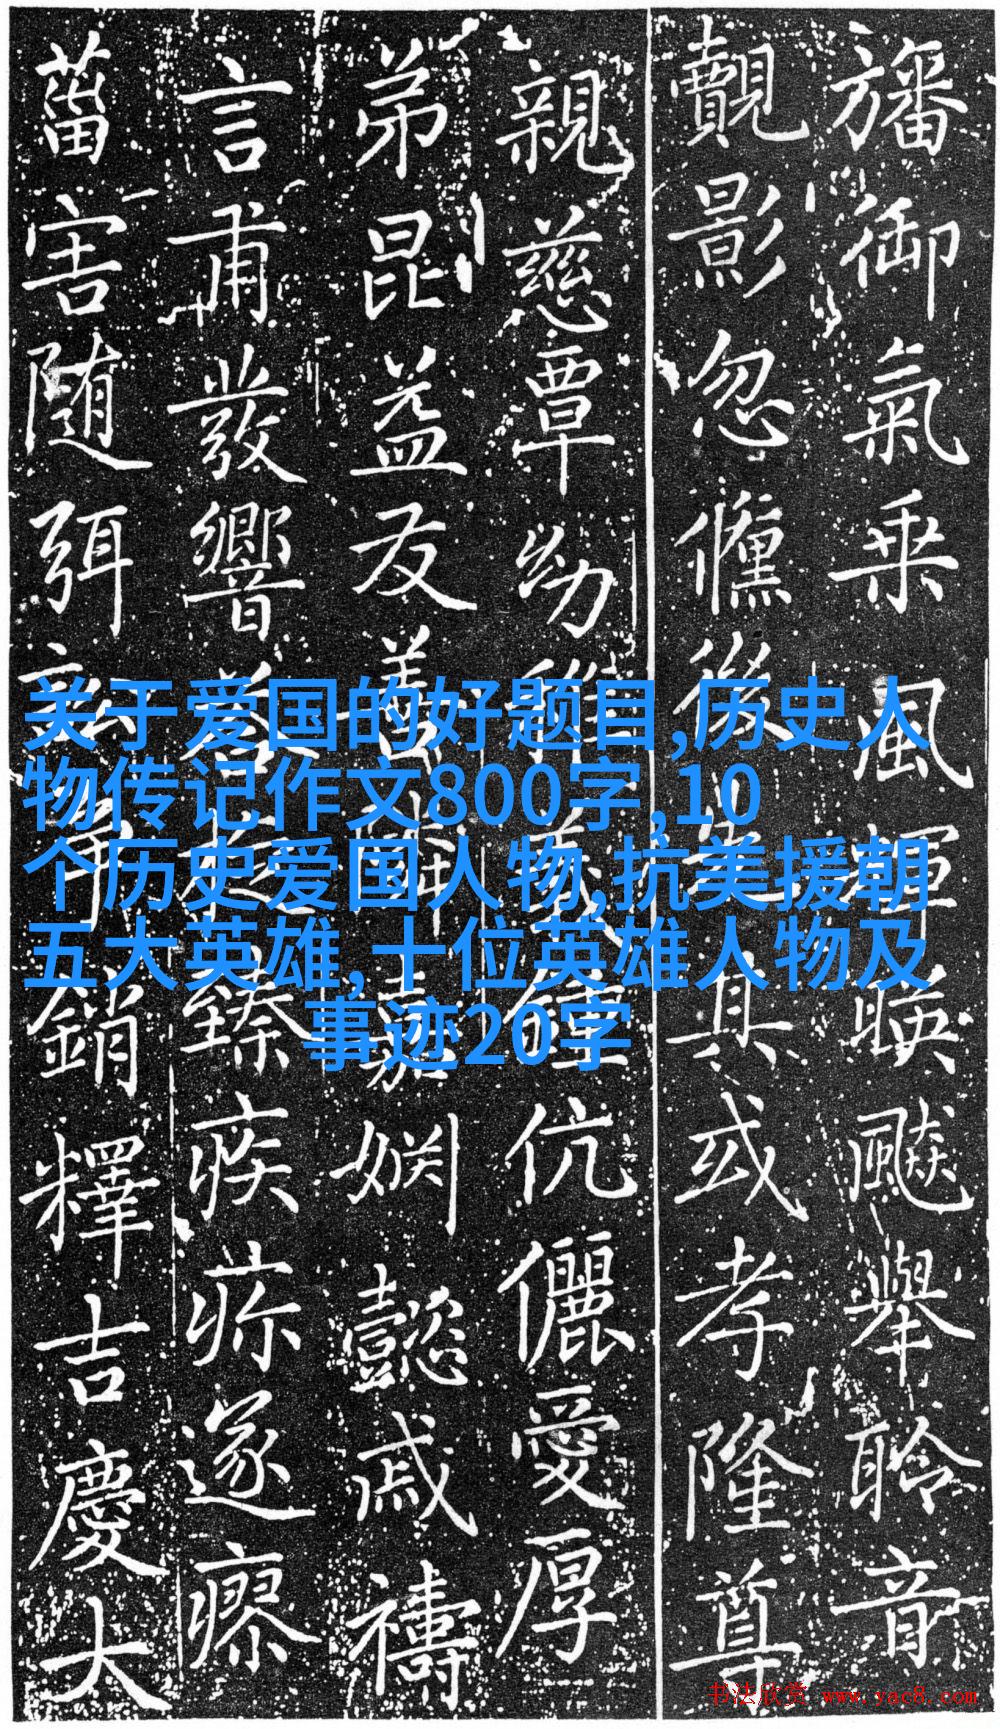 旛御氣乘風暎飈舉聆音
覿影忽後具或孝隆尊
親慈覃幼伉儷愛厚
弟昆益友嘉姻懿戚禱
言甫發響臻疾疹遂瘳
菑害隨弭銷釋吉慶大
关于爱国的好题目,历史人
物传记作文800字,10
个历史爱国人物,抗美援朝
五大英雄,十位英雄人物及
事迹20字
书法欣赏 www.yac8.com